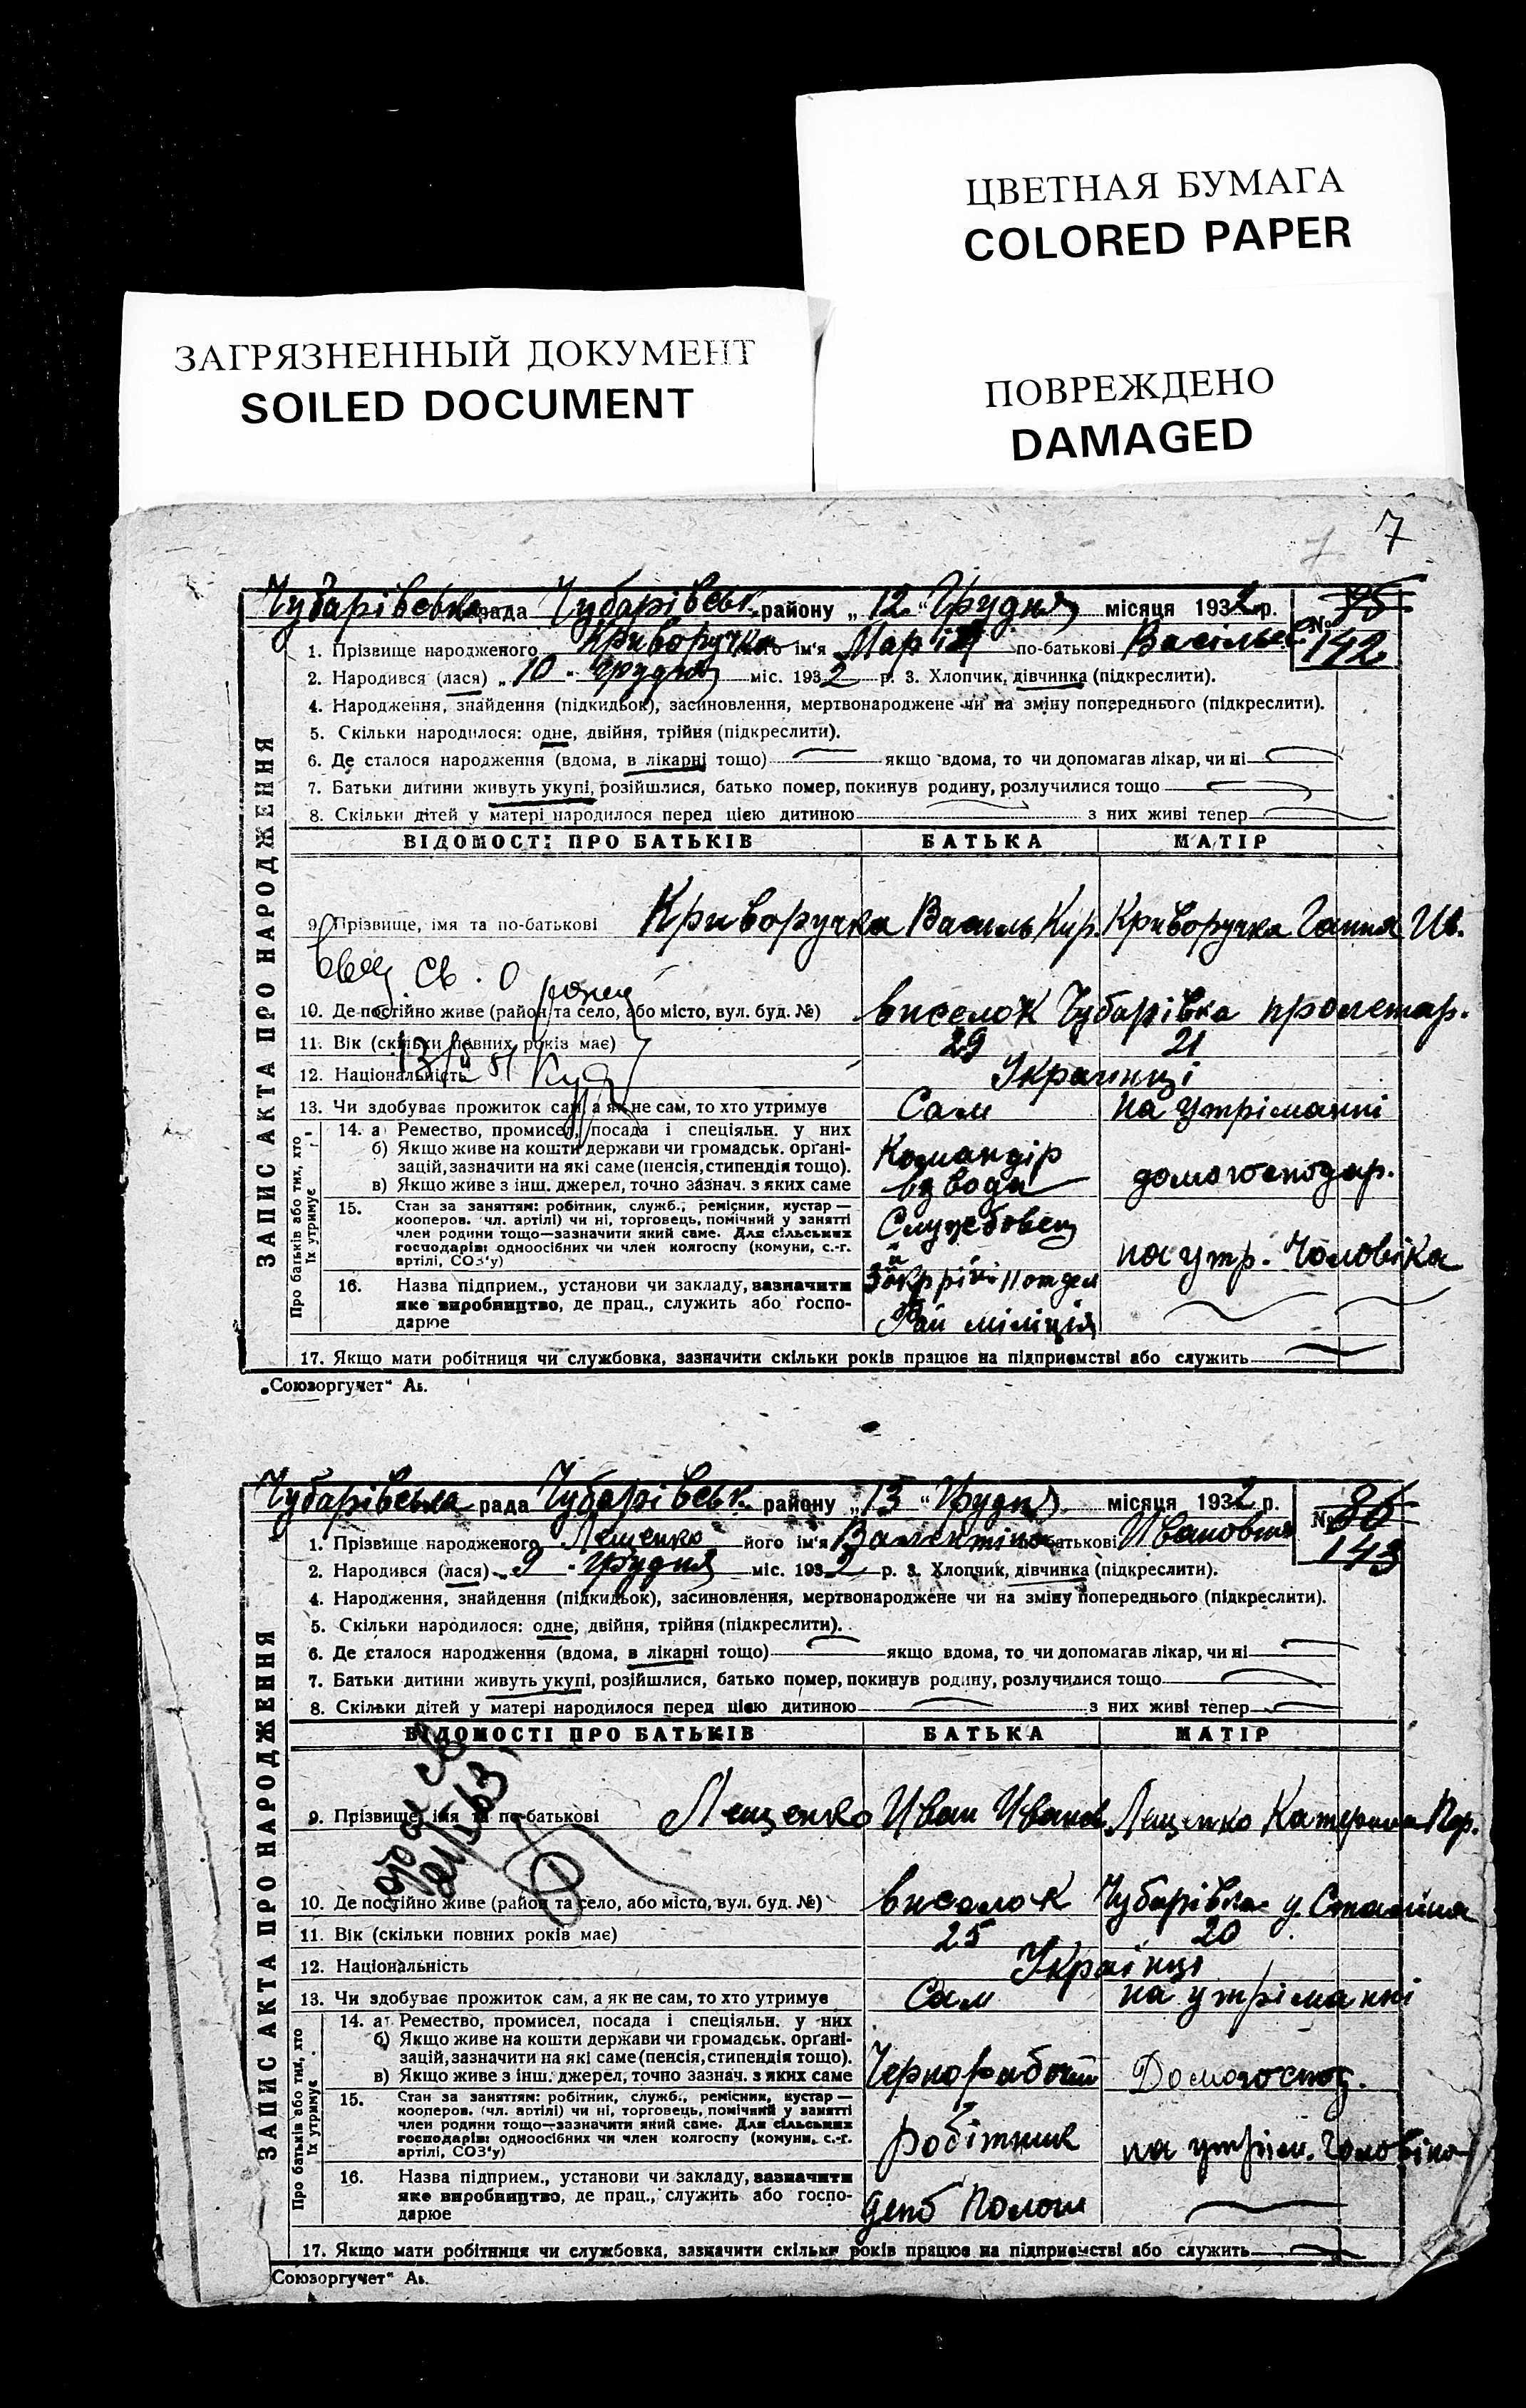 ЦВЕТНАЯ БУМАГА
COLORED PAPER
ЗАГРЯЗНЕННЫЙ ДОКУМЕНТ
SOILED DOCUMENT
ПОВРЕЖДЕНО
DAMAGED
7 7
Чубарівська рада Чубарівськ. району „12“ Грудня місяця 1932 р. №
142
1. Прізвище народженого Криворучка його ім'я Марія по-батькові Васільев
2. Народився (лася) „10“ Грудня міс. 1932 р. 3. Хлопчик, дівчинка (підкреслити).
4. Народження, знайдення (підкидьок), засиновлення, мертвонароджене чи на зміну попереднього (підкреслити).
5. Скільки народилося: одне, двійня, трійня (підкреслити).
6. Де сталося народження (вдома, в лікарні тощо) якщо вдома, то чи допомагав лікар, чи ні
7. Батьки дитини живуть укупі, розійшлися, батько помер, покинув родину, розлучилися тощо
8. Скільки дітей у матері народилося перед цією дитиною з них живі тепер
ЗАПИС АКТА ПРО НАРОДЖЕННЯ
ВІДОМОСТІ ПРО БАТЬКІВ БАТЬКА МАТІР
9. Прізвище, імя та по-батькові Криворучка Василь Кир. Криворучка Ганна Ив.
св. о рожд
10. Де постійно живе (район та село, або місто, вул. буд. №) виселок Чубарівка пролетар.
11. Вік (скільки повних років має) 29 21
12. Національність Українці
13. Чи здобуває прожиток сам, а як не сам, то хто утримує Сам на утріманні
Про батьків або тих, хто їх утримує
14. а) Ремество, промисел, посада і спеціяльн. у них
б) Якщо живе на кошти держави чи громадськ. орґані-
зацій, зазначити на які саме (пенсія, стипендія тощо).
в) Якщо живе з інш. джерел, точно зазнач. з яких саме
Командір взвода домогосподар.
15. Стан за заняттям: робітник, служб., ремісник, кустар —
кооперов. (чл. артілі) чи ні, торговець, помічний у занятті
член родини тощо—зазначити який саме. Для сільських
господарів: одноосібних чи член колгоспу (комуни, с.-г.
артілі, СОЗ'у)
Службовец на утр. Чоловіка
16. Назва підприєм., установи чи закладу, зазначити
яке виробництво, де прац., служить або госпо-
дарює
отдел
Рай міліція
17. Якщо мати робітниця чи службовка, зазначити скільки років працює на підприємстві або служить
„Союзоргучет“ Ав.
Чубарівська рада Чубарівськ. району „13“ Грудня місяця 1932 р. № 86
143
1. Прізвище народженого Лещенко його ім'я Валентіна по-батькові Ивановна
2. Народився (лася) „9“ Грудня міс. 1932 р. 3. Хлопчик, дівчинка (підкреслити).
4. Народження, знайдення (підкидьок), засиновлення, мертвонароджене чи на зміну попереднього (підкреслити).
5. Скільки народилося: одне, двійня, трійня (підкреслити).
6. Де сталося народження (вдома, в лікарні тощо) якщо вдома, то чи допомагав лікар, чи ні
7. Батьки дитини живуть укупі, розійшлися, батько помер, покинув родину, розлучилися тощо
8. Скільки дітей у матері народилося перед цією дитиною з них живі тепер
ЗАПИС АКТА ПРО НАРОДЖЕННЯ
ВІДОМОСТІ ПРО БАТЬКІВ БАТЬКА МАТІР
9. Прізвище, імя та по-батькові Лещенко Иван Иванов. Лещенко Катерина
10. Де постійно живе (район та село, або місто, вул. буд. №) виселок Чубарівка у. Сталіна
11. Вік (скільки повних років має) 25 20
12. Національність Українці
13. Чи здобуває прожиток сам, а як не сам, то хто утримує Сам на утріманні
Про батьків або тих, хто їх утримує
14. а) Ремество, промисел, посада і спеціяльн. у них
б) Якщо живе на кошти держави чи громадськ. орґані-
зацій, зазначити на які саме (пенсія, стипендія тощо).
в) Якщо живе з інш. джерел, точно зазнач. з яких саме
Чернорабочий Домогоспод.
15. Стан за заняттям: робітник, служб., ремісник, кустар —
кооперов. (чл. артілі) чи ні, торговець, помічний у занятті
член родини тощо—зазначити який саме. Для сільських
господарів: одноосібних чи член колгоспу (комуни, с.-г.
артілі, СОЗ'у)
робітник на утрім. Чоловіка
16. Назва підприєм., установи чи закладу, зазначити
яке виробництво, де прац., служить або госпо-
дарює
депо Пологи
17. Якщо мати робітниця чи службовка, зазначити скільки років працює на підприємстві або служить
Союзоргучет“ Ав.